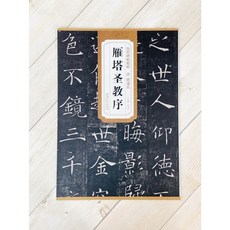 雁塔圣教序
之世人仰德
晦影歸
世金容
色不鏡三千